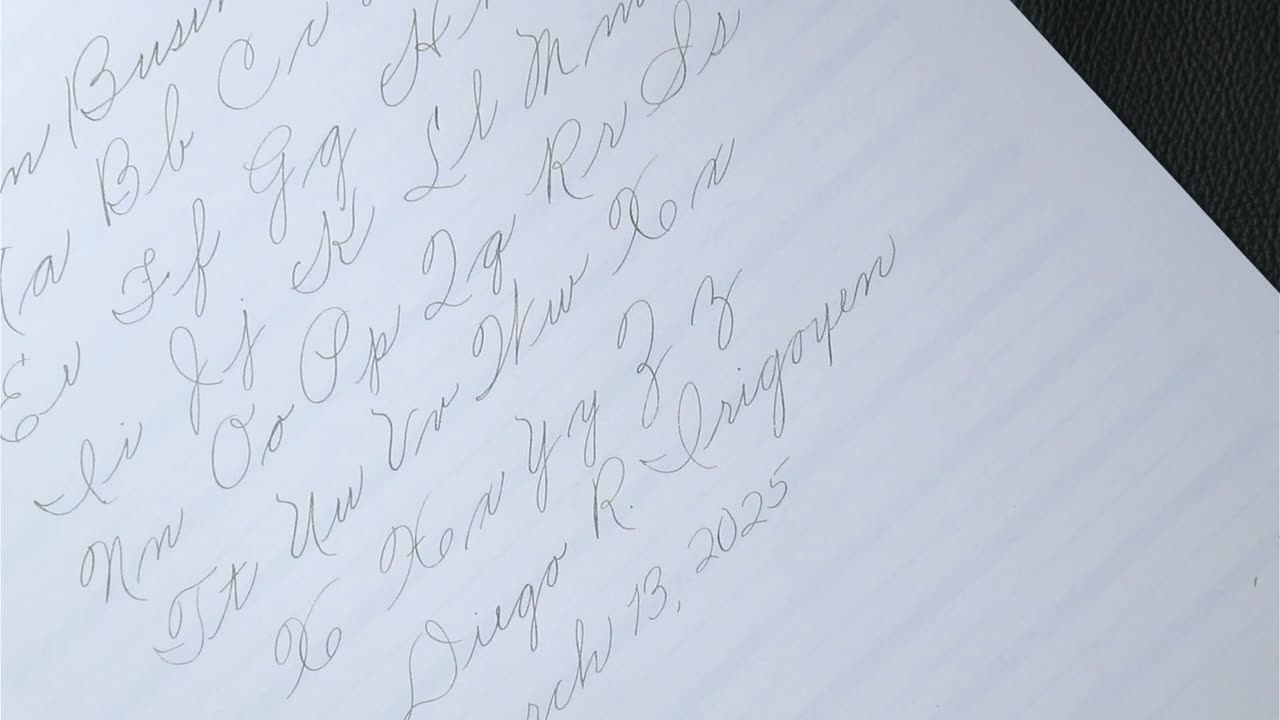 a Bb Cc
Ee Ff Gg H
Ii Jj K Ll Mm
Nn Oo Pp Qq Rr Ss
Tt Uu Vv Ww Xx
X Xx Yy Zz
Diego R. Irigoyen
rch 13, 2025